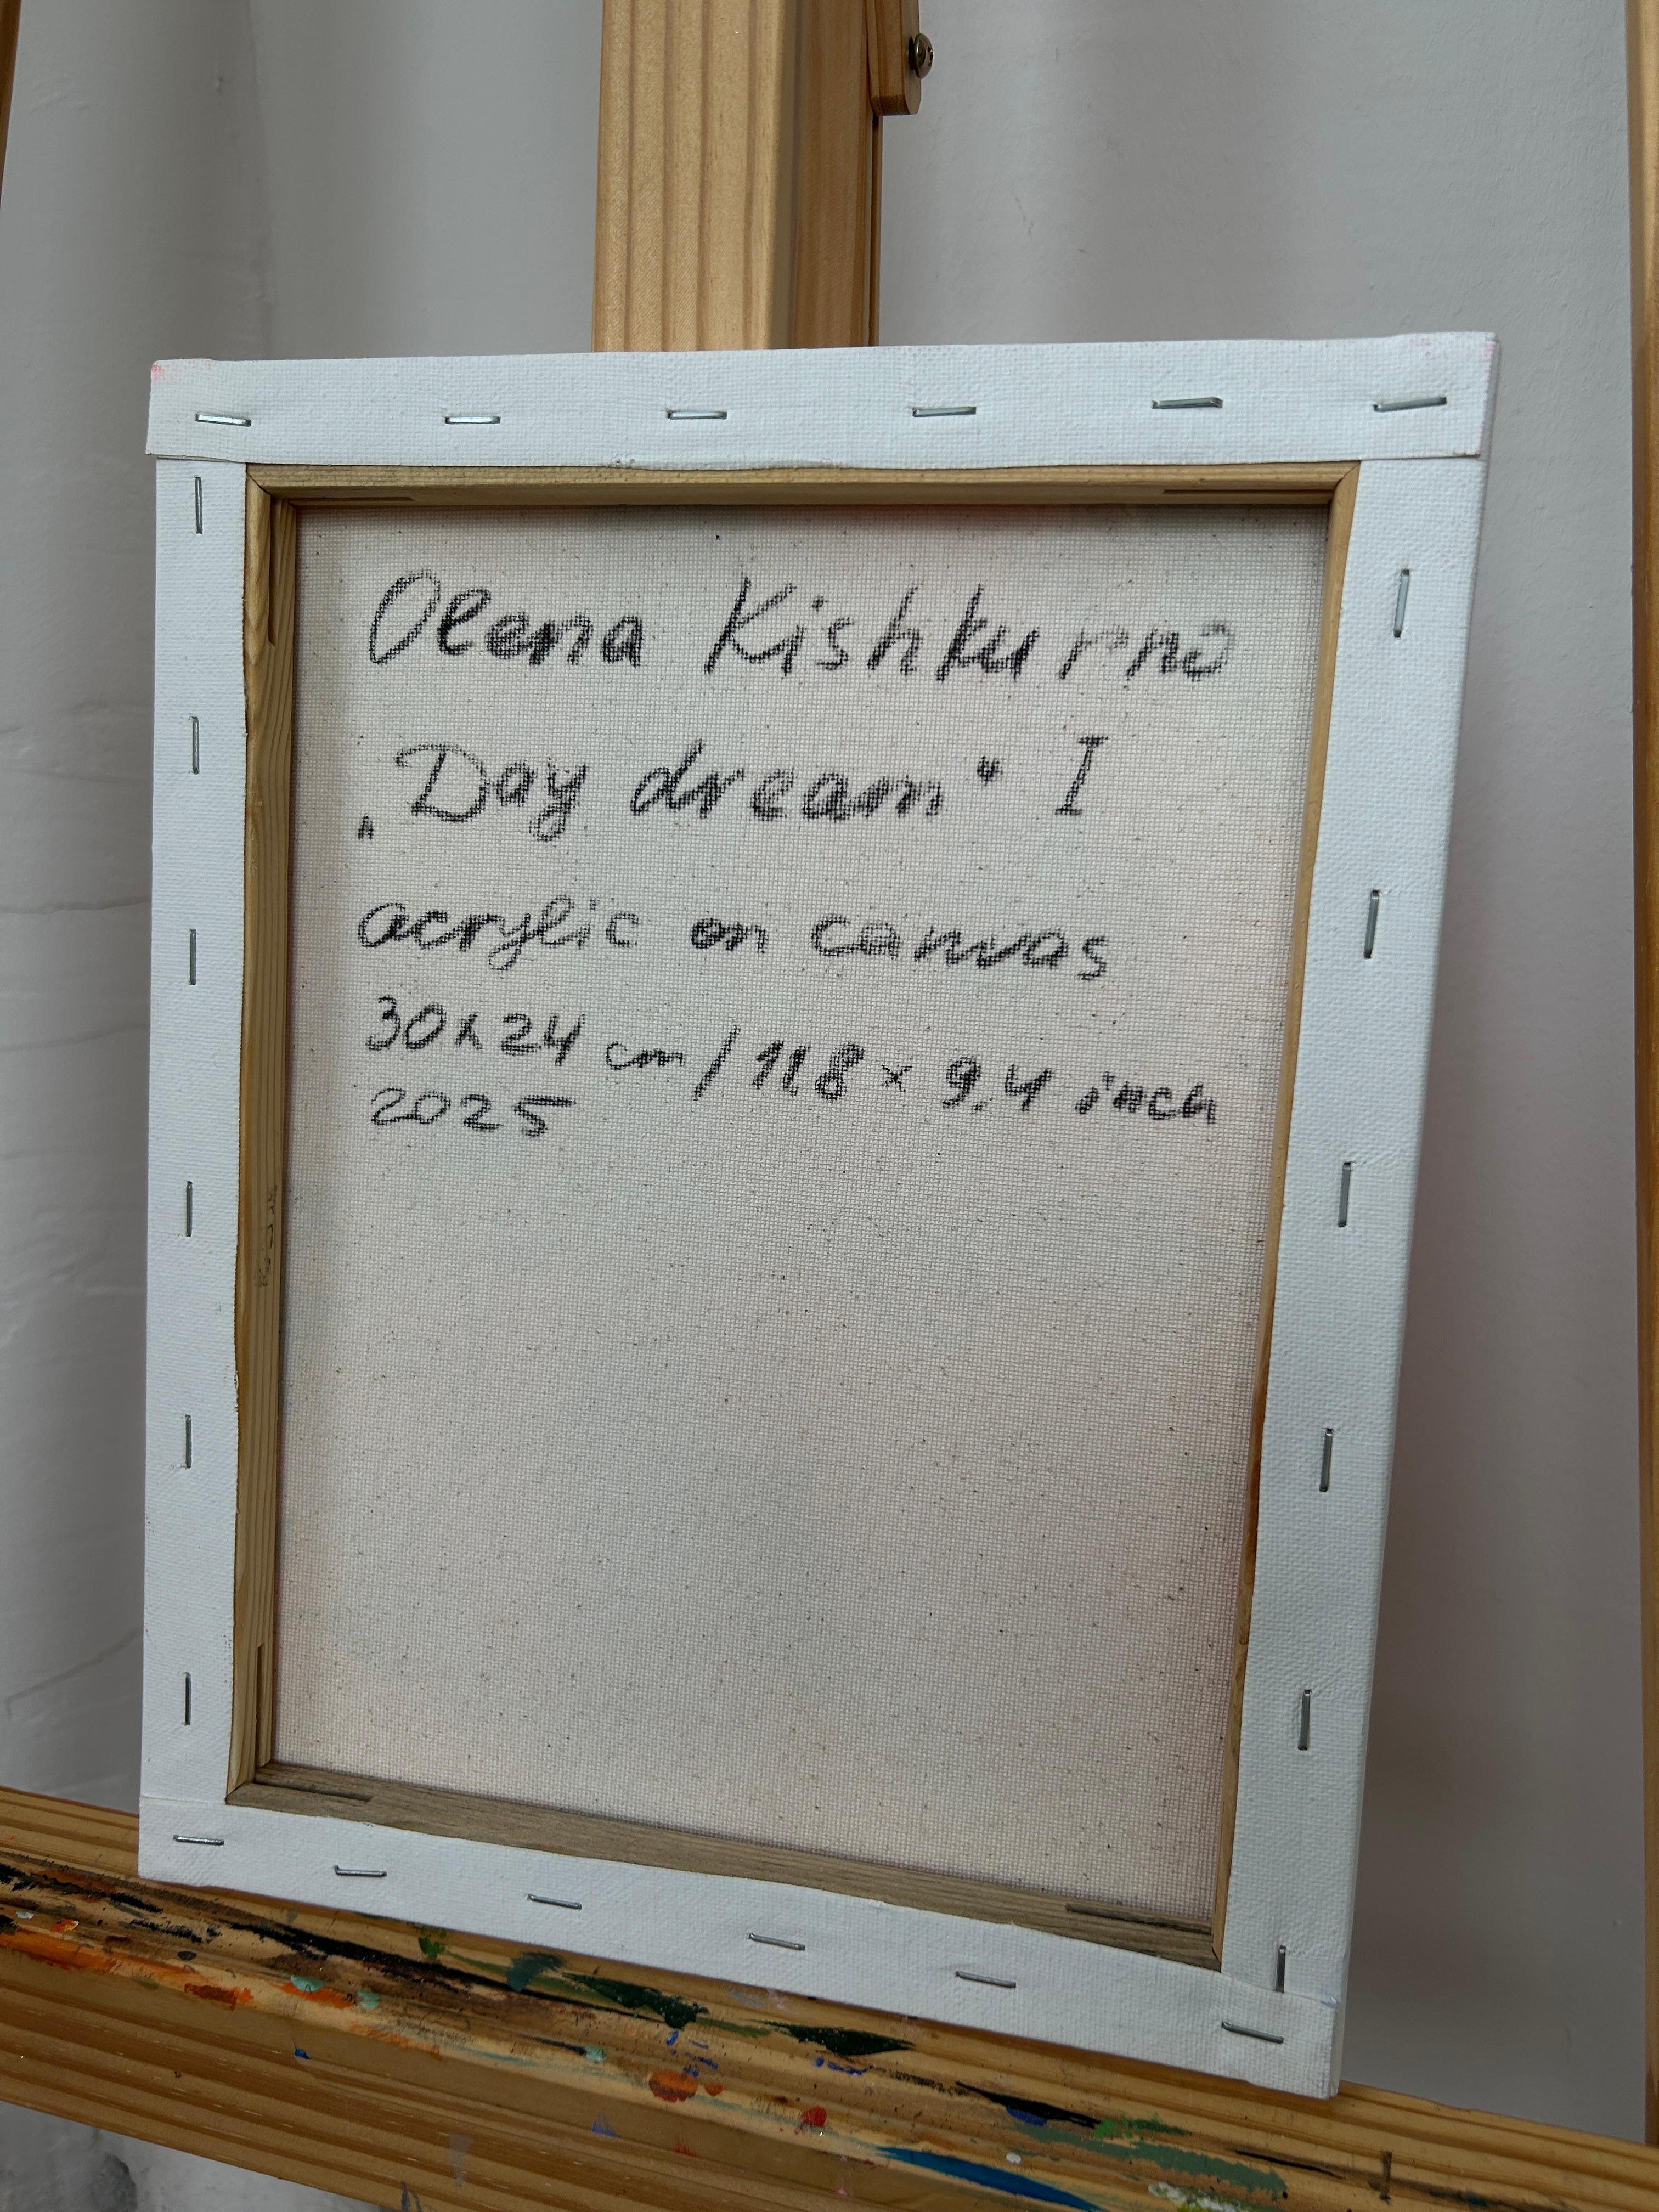 Olena Kishkurno
„Day dream“ I
acrylic on canvas
30x24 cm / 11.8 x 9.4 inch
2025